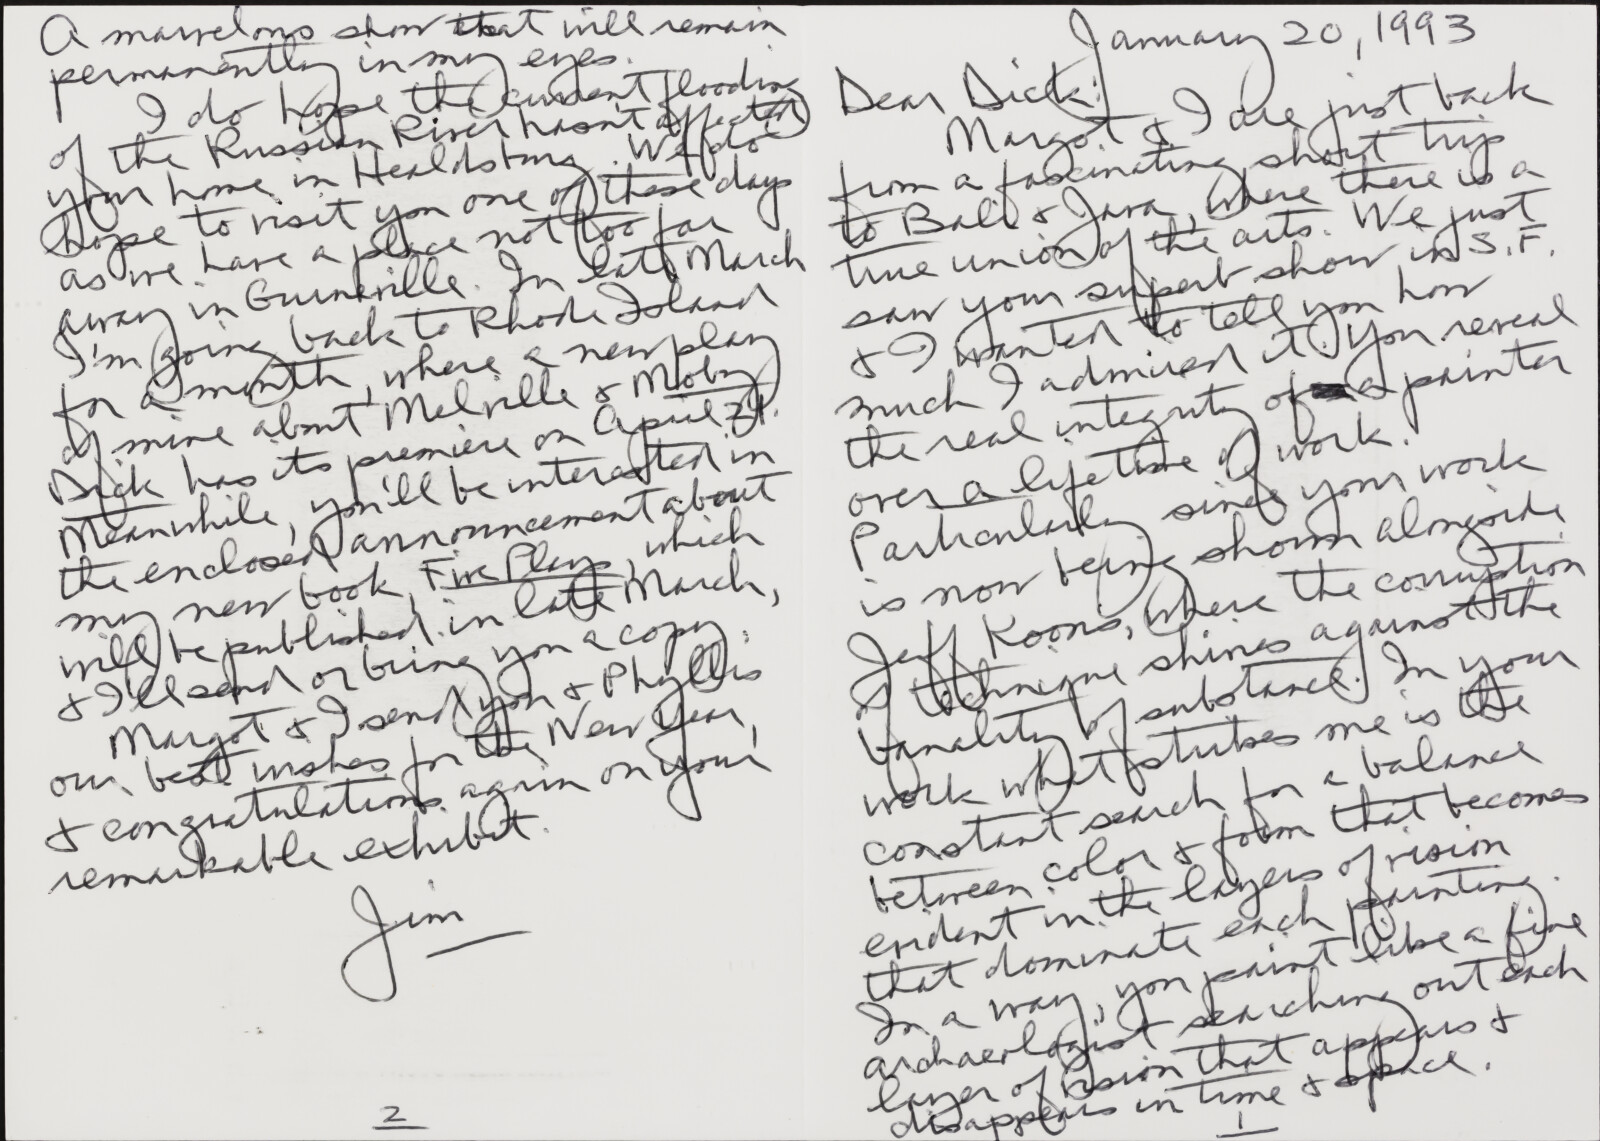 January 20, 1993
Dear Dick:
Margot & I are just back
from a fascinating short trip
to Bali & Java, where there is a
true union of the arts. We just
saw your superb show in S.F.
& I wanted to tell you how
much I admired it. You reveal
the real integrity of a painter
over a lifetime of work.
Particularly since your work
is now being shown alongside
Jeff Koons, where the corruption
of technique shines against the
banality of substance. In your
work what strikes me is the
constant search for a balance
between color & form that becomes
evident in the layers of vision
that dominate each painting.
In a way, you paint like a fine
archaeologist searching out each
layer of vision that appears &
disappears in time & space.
1
A marvelous show that will remain
permanently in my eyes.
I do hope the current flooding
of the Russian River hasn't affected
your home in Healdsburg. We do
hope to visit you one of these days
as we have a place not too far
away in Guerneville. In late March
I'm going back to Rhode Island
for a month, where a new play
of mine about Melville & Moby
Dick has its premiere on April 21.
Meanwhile, you'll be interested in
the enclosed announcement about
my new book, Five Plays, which
will be published in late March,
& I'll send or bring you a copy.
Margot & I send you & Phyllis
our best wishes for the New Year,
& congratulations again on your
remarkable exhibit.
Jim
2